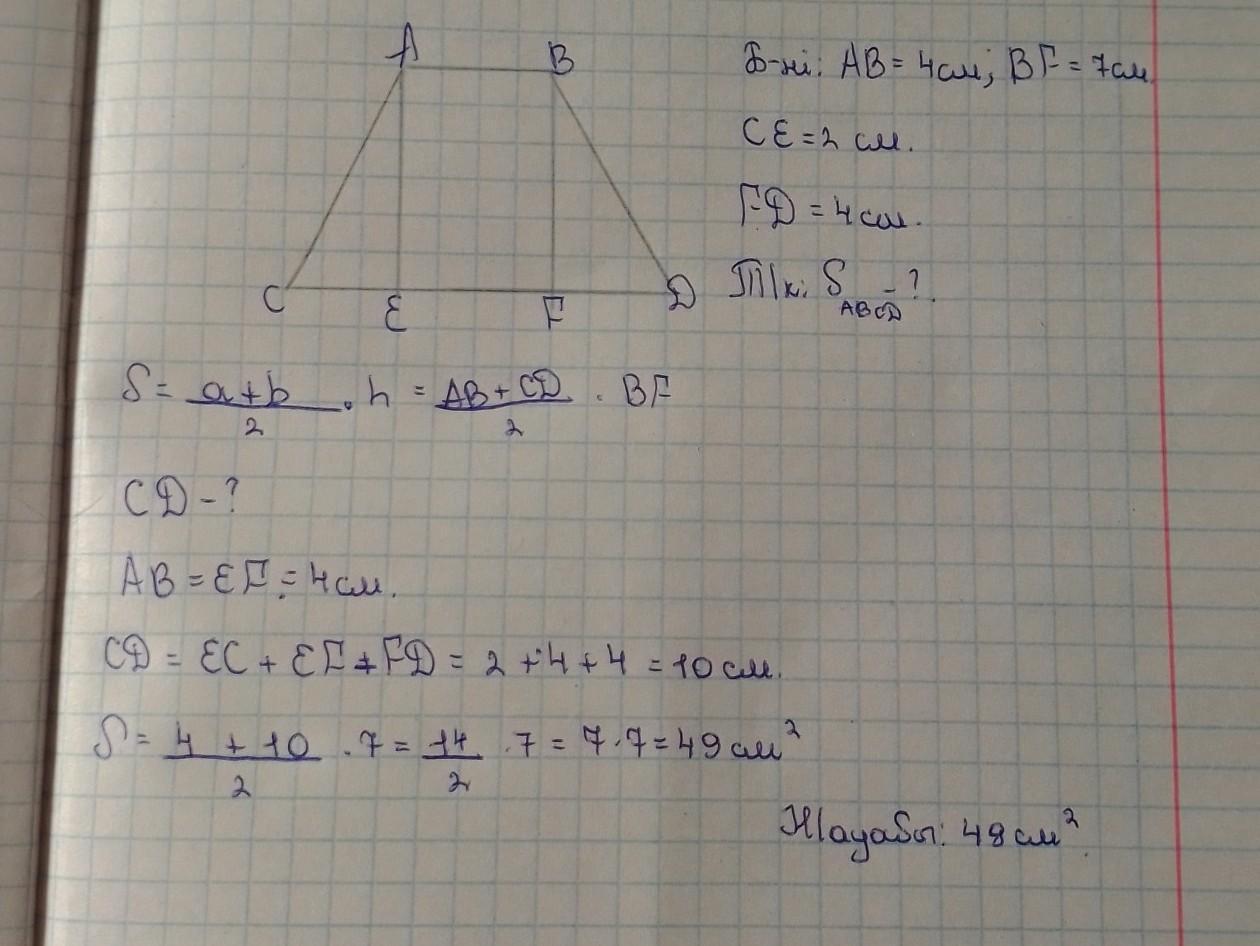 A B
C E F D
Б-ні: AB = 4см; BF = 7см
CE = 2 см.
FD = 4 см.
Т/к: S_ABCD - ?
S = (a + b)/2 · h = (AB + CD)/2 · BF
CD - ?
AB = EF = 4 см.
CD = EC + EF + FD = 2 + 4 + 4 = 10 см.
S = (4 + 10)/2 · 7 = 14/2 · 7 = 7 · 7 = 49 см²
Жауабы: 48 см²